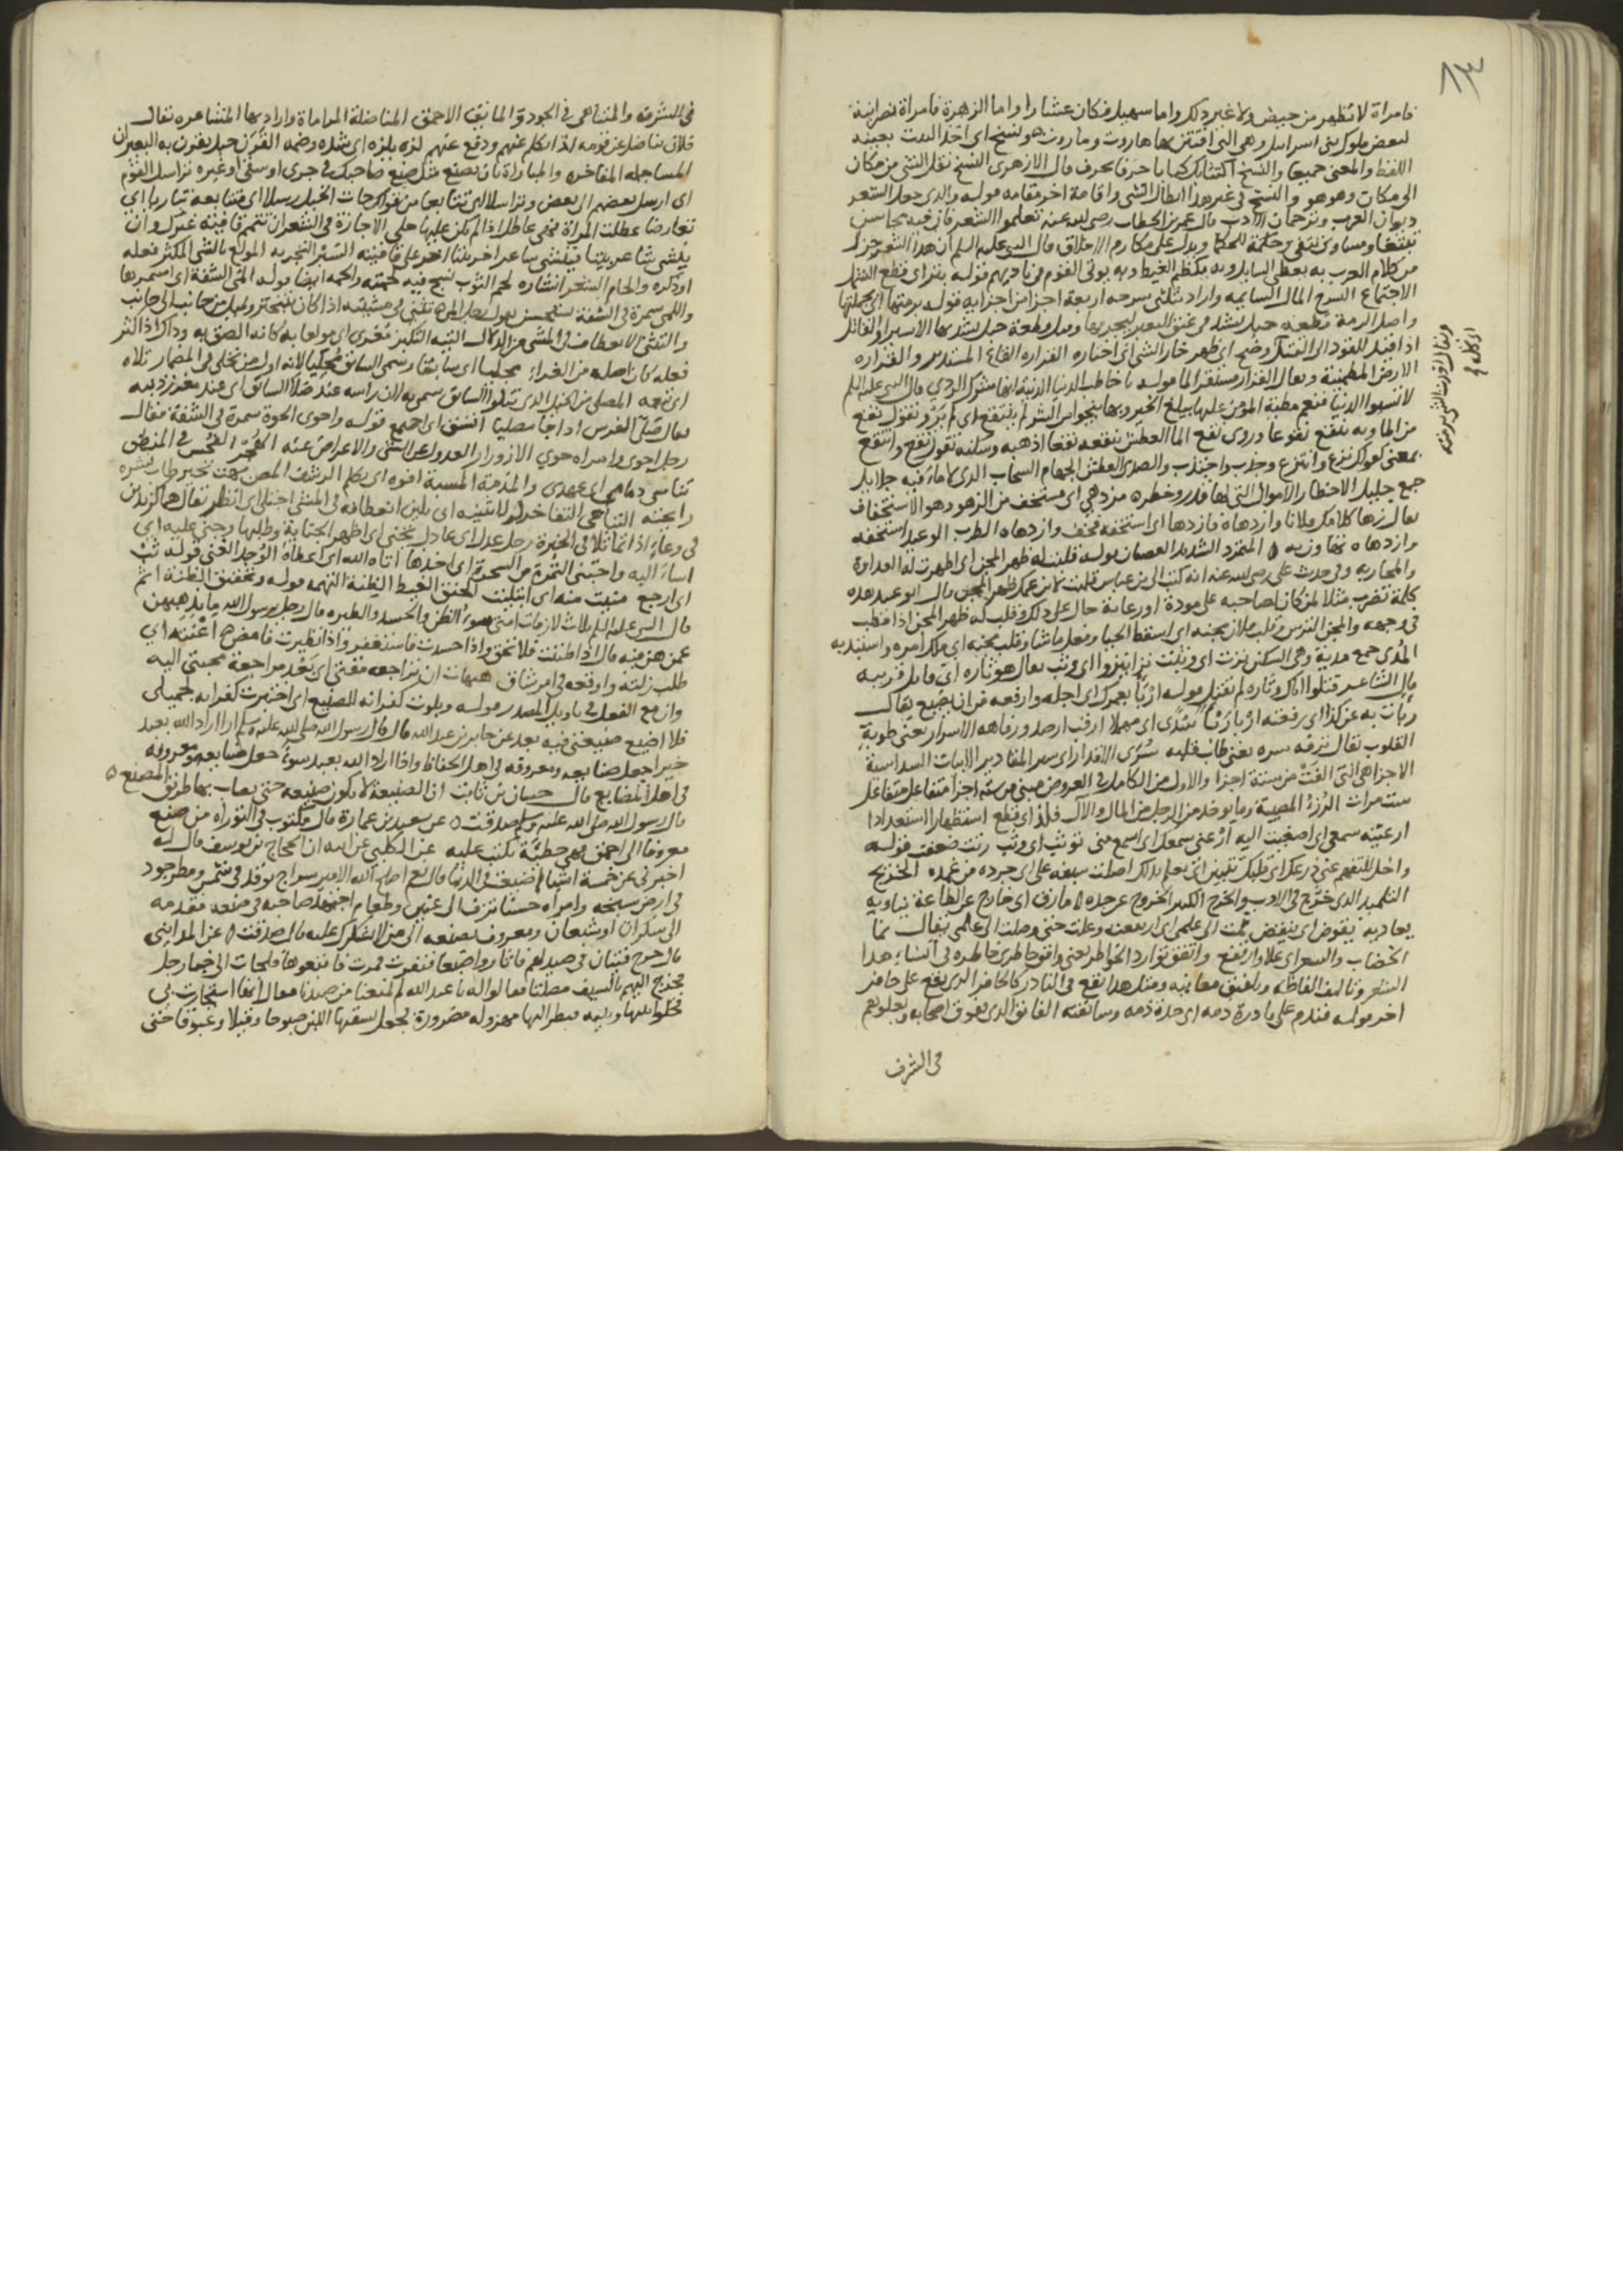 ٨٣
فامراة لا تطهر من حيض ولا غير ذلك واما سهيل فكان عشارا واما الزهرة فامراة نصرانية
لبعض ملوك بنى اسرايل وهى التى افتتن بها هاروت وماروت هو نسخ اى اخذ البيت بعينه
اللفظ والمعنى جميعا والنسخ اكتتابك كتابا حرفا بحرف قال الازهرى النسخ نقل الشى من مكان
الى مكان وهو هو والنسخ فى غير هذا ابطال الشى واقامة اخر مقامه قوله والدى جعل الشعر
ديوان العرب وترجمان الادب قال عمر بن الخطاب رضى لله عنه تعلموا الشعر فان فيه محاسن
تبتغا ومساوى تتقى وحكمة للحكما ويدل على مكارم الاخلاق قال النبى عليه السلم ان هذا الشعر جزل
من كلام العرب به يعطى السايل وبه يكظم الغيظ وبه يوتى القوم فى ناديهم قوله بتراى قطع الشمل
الاجتماع السرح المال السايمه واراد بثلثى سرحه اربعة اجزا من اجزايه قوله برمتها اى بجملتها
واصل الرمة قطعه حبل يشد فى عنق البعير ليجر بها وقيل قطعة حبل يشد بها الاسير او القاتل
اذا قيد للقود الى القتل وضح اى ظهر خار الشى اى اختاره القراره القاع المستدير والقراره
الارض المطمينة ويقال القرار مستقر الما قوله يا خاطب الدنيا الدنية انها شرك الردي قال النبى عليه السلم
لا تسبوا الدنيا فنعم مطية المؤمن عليها يبلغ الخير وبها ينجو من الشر لم ينتقع اى لم يرو تقول نقع
من الما وبه ينقع نقوعا وروى نقع الما العطش ينقعه نقعا اذهبه وسكنه تقول نقع وانتقع
بمعنى كقولك نزع وانتزع وجذب واجتذب والصدى العطش الجهام السحاب الذى لا ماء فيه جلايل
جمع جليل الاخطار الاموال التى لها قدر وخطره مزدهى اى مستخف من الزهو وهو الاستخفاف
يقال زها كلامك فلانا وازدهاه فازدها اى استخفه فخف وازدهاه الطرب الوعيد استخفه
وازدهاه تهاون به ٥ المتمرد الشديد العصيان قوله قلبت له ظهر المجن اى اظهرت له العداوة
والمحاربه وفى حديث على رضى لله عنه انه كتب الى بن عباس قلبت لابن عمك ظهر المجن قال ابو عبيد هذه
كلمة تضرب مثلا لمن كان لصاحبه على مودة او رعاية حال عن ذلك وقلب له ظهر المجن اذا قطب
فى وجهه والمجن الترس وقلب فلان مجنه اى اسقط الحيا وفعل ما شا وقلب مجنه اى ملك امره واستبد به
المدى جمع مدية وهى السكين نزت اى وثبت نزا ينزوا اى وثب يقال هو ثاره اى قاتل قريبه
قال الشاعر قتلوا اباك وثاره لم يقتل قوله اربا بعمرك اى اجله وارفعه من ان يضيع يقال
القلوب يقال نزقه سره يعنى طاب قلبه سرى الاقدار اى سير المقادير الابيات السداسية
الاجزا هى التى الفت من ستة اجزا والاول من الكامل فى العروض مبنى من سته اجزا متفاعل متفاعل
ست مرات الرزء المصيبة وما يوخذ من الرجل من المال والآل فلذ اى قطع استظهارا استعدادا
ارعيته سمعى اى اصغيت اليه ارعنى سمعك اى اسمع منى توثب اى وثب رنت ضعفت قوله
التلميذ الذى خرج فى الادب والخرج الكثير الخروج عن حده ٥ مارق اى خارج عن الطاعة يناويه
يعاديه يقوض اى ينقض نمت الى علمى اى اربعت وعلت حتى وصلت الى علمى يقال نما
الخضاب والسعر اى علا وارتفع واتفق توارد الخواطر يعنى وافق خاطرى خاطره فى انشاء هدا
الشعر وتاليف الفاظه وتلفيق معانيه ومثل هدا يقع فى النادر كالحافر الذى يقع على حافر
اخر قوله فندم على بادرة ذمه اى حدة ذمه وسابقته الفايق الذى يفوق اصحابه ويعلوهم
فى الشرف
فى الشرف والمتناهى فى الجودة المايق الاحمق المناضلة المراماة واراد بها المشاعره يقال
فلان يناضل عن قومه اذا تكلم عنهم ودفع عنهم لزه يلزه اى شده وضمه القرن حبل يقرن به البعيران
المساجله المفاخره والمباراة بان يصنع مثل صنع صاحبك فى جرى او سقى او غيره تراسل القوم
اى ارسل بعضهم الى بعض وتراسلا اى تتابعا من قولك جات الخيل رسلا اى متتابعه تباريا اى
تعارضا عطلت المراة فهى عاطل اذا لم يكن عليها حلى الاجازة فى الشعر ان تتم قافية غيرك وان
ينشى شاعر بيتا فينشى شاعر اخر بيتا اخر على قافيته السبر التجربه المولع بالشى المكثر فعله
اوذكره والحام الشعر انشاره لحم الثوب نسج فيه لحمته والحمه ايضا قوله المى الشفة اى اسمر بها
واللمى سمرة فى الشفة تستحسن
والتثنى الانعطاف فى المشى من الدلال التيه التكبر مغرى اى مولعا به كانه الصق به وذاك اذا اكثر
فعله كان اصله من الغراء مجليا اى سابقا وسمى السابق مجليا لانه اول من تجلى فى المضمار تلاه
اى تبعه المصلى من الخيل الذى يتلوا السابق سمى به لان راسه عند صلا السابق اى عند مغرز ذنبه
يقال صلى الفرس اذا جا مصليا اتسق اى اجتمع قوله واحوى الحوة سمرة فى الشفة يقال
رجل احوى وامراه حوي الازورار العدول عن الشى والاعراض عنه الهجر الفحش فى المنطق
تناسى ذمامى اى عهدى والمذمة المسبة افوه اى تكلم
فى وعاء اذا تماثلا فى الخبرة رجل عدل اى عادل تجنى اى اظهر الجناية وطلبها وجنى عليه اى
اساء اليه واجتنى الثمرة من الشجرة اى اخذها اتاه الله اى اعطاه الوجد الغنى قوله تب
اى ارجع منيت منه اى ابتليت الحنق الغيظ الظنة التهمه قوله وتحقيق الظنة اثم
قال النبى عليه السلم ثلاث لازمات امتى سوء الظن والحسد والطيره قال رجل يرسول الله ما يذهبهن
عمن هن فيه قال اذا ظننت فلا تحقق واذا حسدت فاستغفر واذا تطيرت فامض ٥ اعنته اى
طلب زلته واوقعه فى امر شاق هيهات ان تراجعه مقتى اى بعد مراجعة محبتى اليه
وازمع الفعل فى تاويل المصدر قوله وبلوت كفرانه للصنيع اى اختبرت كفرانه لجميلى
فلا اضيع صنيعتى فيه بعد عن جابر بن عبدالله قال قال رسول الله صلى لله عليه وسلم اذا اراد الله بعبد
خيرا جعل صنايعه ومعروفه فى اهل الحفاظ واذا اراد الله بعبد سوءا جعل صنايعه ومعروفه
فى اهل المضايع قال حسان بن ثابت ان الصنيعة لا تكون صنيعه حتى يصاب بها طريق المصنع ٥
قال رسول الله صلى الله عليه وسلم صدقت ٥ عن سعيد بن عمارة قال مكتوب فى التوراه من صنع
معروفا الى احمق فهى خطيئة تكتب عليه عن الكلبى عن ابيه ان الحجاج بن يوسف قال له
اخبرنى عن خمسة اشيا اضيعت فى الدنيا قال نعم اصلح الله الامير سراج توقد فى شمس ومطر جود
فى ارض سبخه وامراه حسنا تزف الى عنين وطعام اجتهد صاحبه فى صنعه فقدمه
الى سكران او شبعان ومعروف تصنعه الى من لا يشكرك عليه قال صدقت ٥ عن المداينى
قال خرج فتيان فى صيد لهم فاثاروا ضبعا فنفرت فمرت فاتبعوها فلجات الى خبا رجل
فخرج اليهم بالسيف مصلتا فقالوا له يا عبدالله لم تمنعنا من صيدنا فقال انها استجارت بى
فخلوا بينها وبينه فنظر اليها مهزوله مضرورة فجعل يسقيها اللبن صبوحا وقيلا وغبوقا حتى